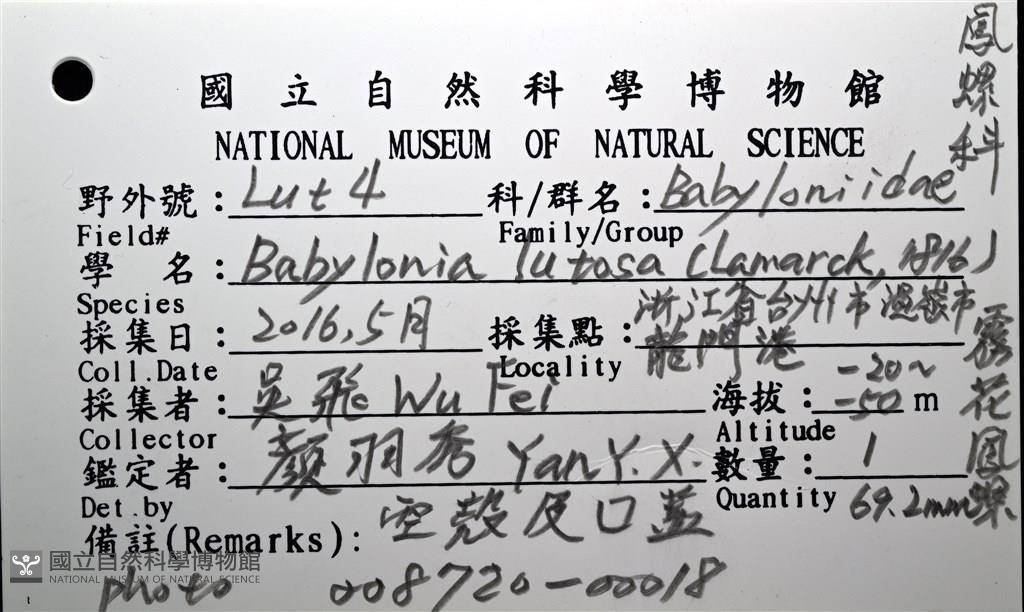 國立自然科學博物館
NATIONAL MUSEUM OF NATURAL SCIENCE
野外號：Lut 4
Field#
科/群名：Babyloniidae
Family/Group
鳳螺科
學 名：Babylonia lutosa (Lamarck, 1816)
Species
採集日：2016,5月
Coll.Date
採集點：浙江省台州市溫嶺市
龍門港
Locality
採集者：吳飛 Wu Fei
Collector
海拔：-20~
-50 m
Altitude
鑑定者：顏羽秀 Yan Y. X.
Det.by
數量：1
Quantity 69.2mm
霧花鳳螺
備註(Remarks): 空殼及口蓋
photo 008720-00018
國立自然科學博物館
NATIONAL MUSEUM OF NATURAL SCIENCE